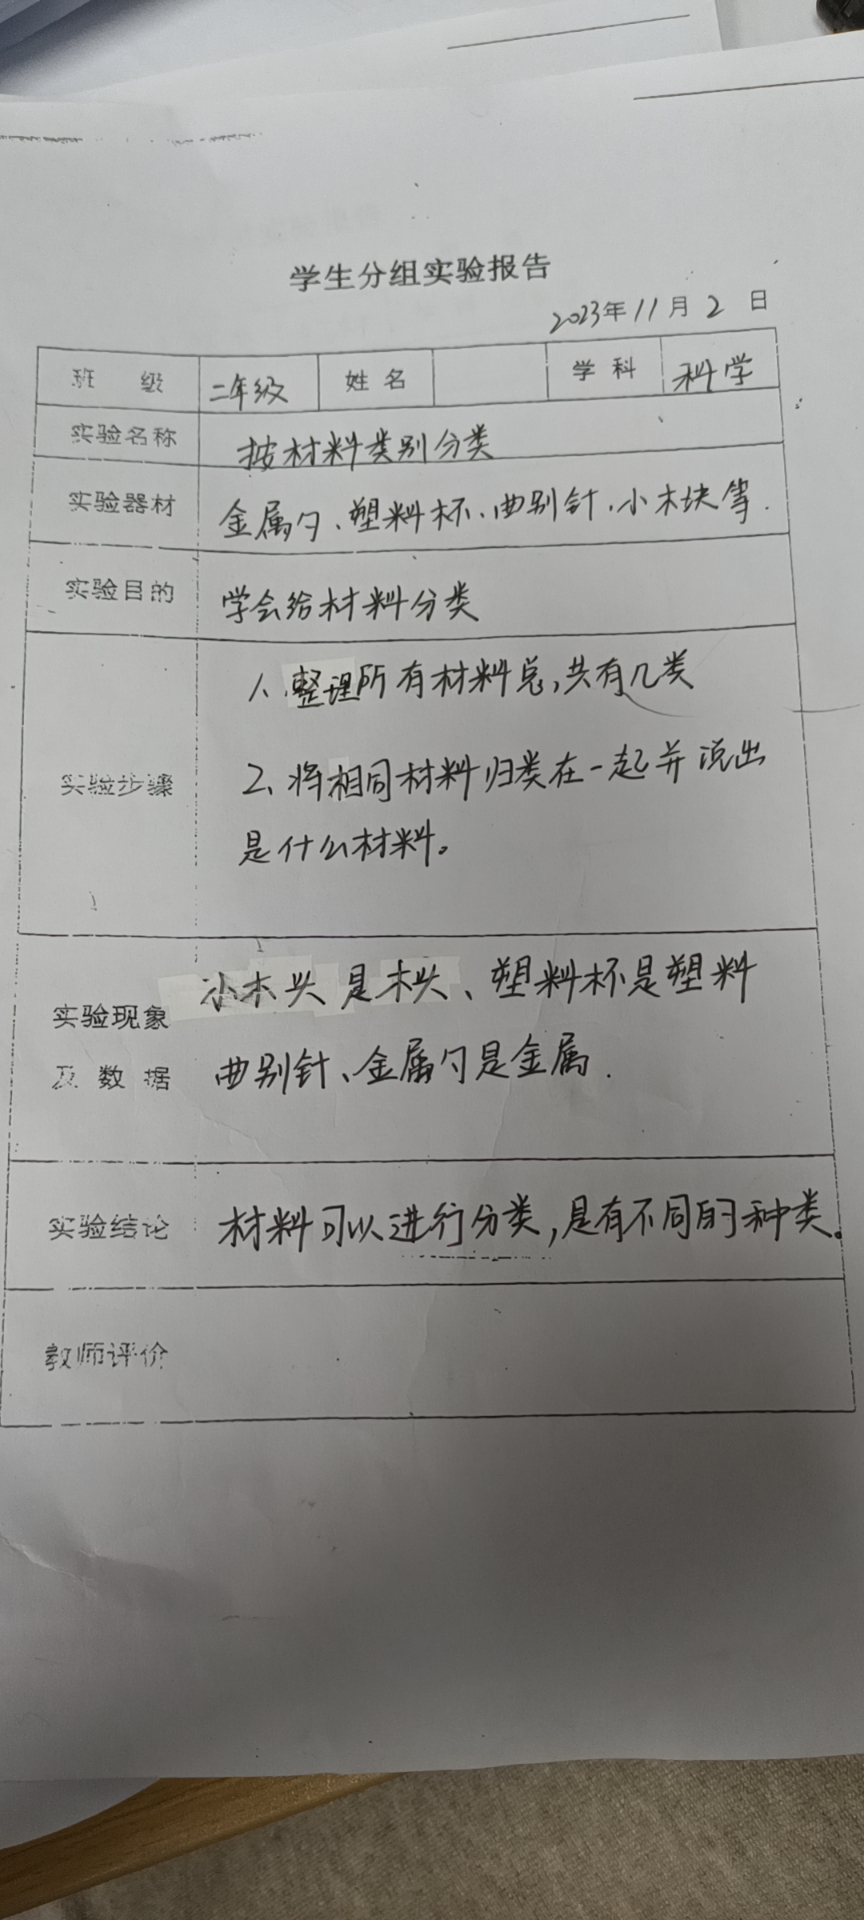 学生分组实验报告
2023年11月2日
班级 二年级 姓名 学科 科学
实验名称 按材料类别分类
实验器材 金属勺、塑料杯、曲别针、小木块等.
实验目的 学会给材料分类
实验步骤
1、整理所有材料总,共有几类
2、将相同材料归类在一起并说出
是什么材料。
实验现象
及数据
小木头是木头、塑料杯是塑料
曲别针、金属勺是金属.
实验结论 材料可以进行分类,是有不同的种类。
教师评价